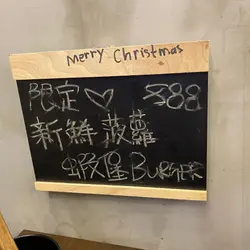 Merry Christmas
限定♡ $88
新鮮菠蘿
蝦堡BURGER